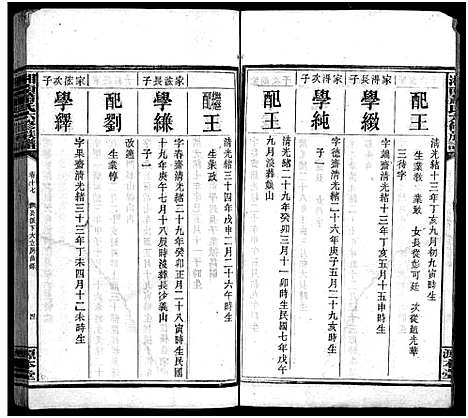 配王
清光緒十三年丁亥九月初九寅時生
生業教 業敏 女長從彭可廷 次從趙光華
三待字
家得長子
學緻
字鏡齋清光緒十三年丁亥五月十五申時生
家得次子
學純
字德齋清光緒二十六年庚子五月二十九亥時生
子
配王
清光緒二十九年癸卯三月十一卯時生民國七年戊午
九月沒葬嶽山
繼配王
清光緒三十四年戊申二月二十六午時生
生業政
家法長子
學緁
字春齋清光緒二十九年癸卯正月二十八寅時生民國
十九年庚午七月十八辰時沒葬長沙義山
子一
配劉
生業惇
家法次子
學繹
字果齋清光緒三十三年丁未四月十二未時生
卷廿七
四